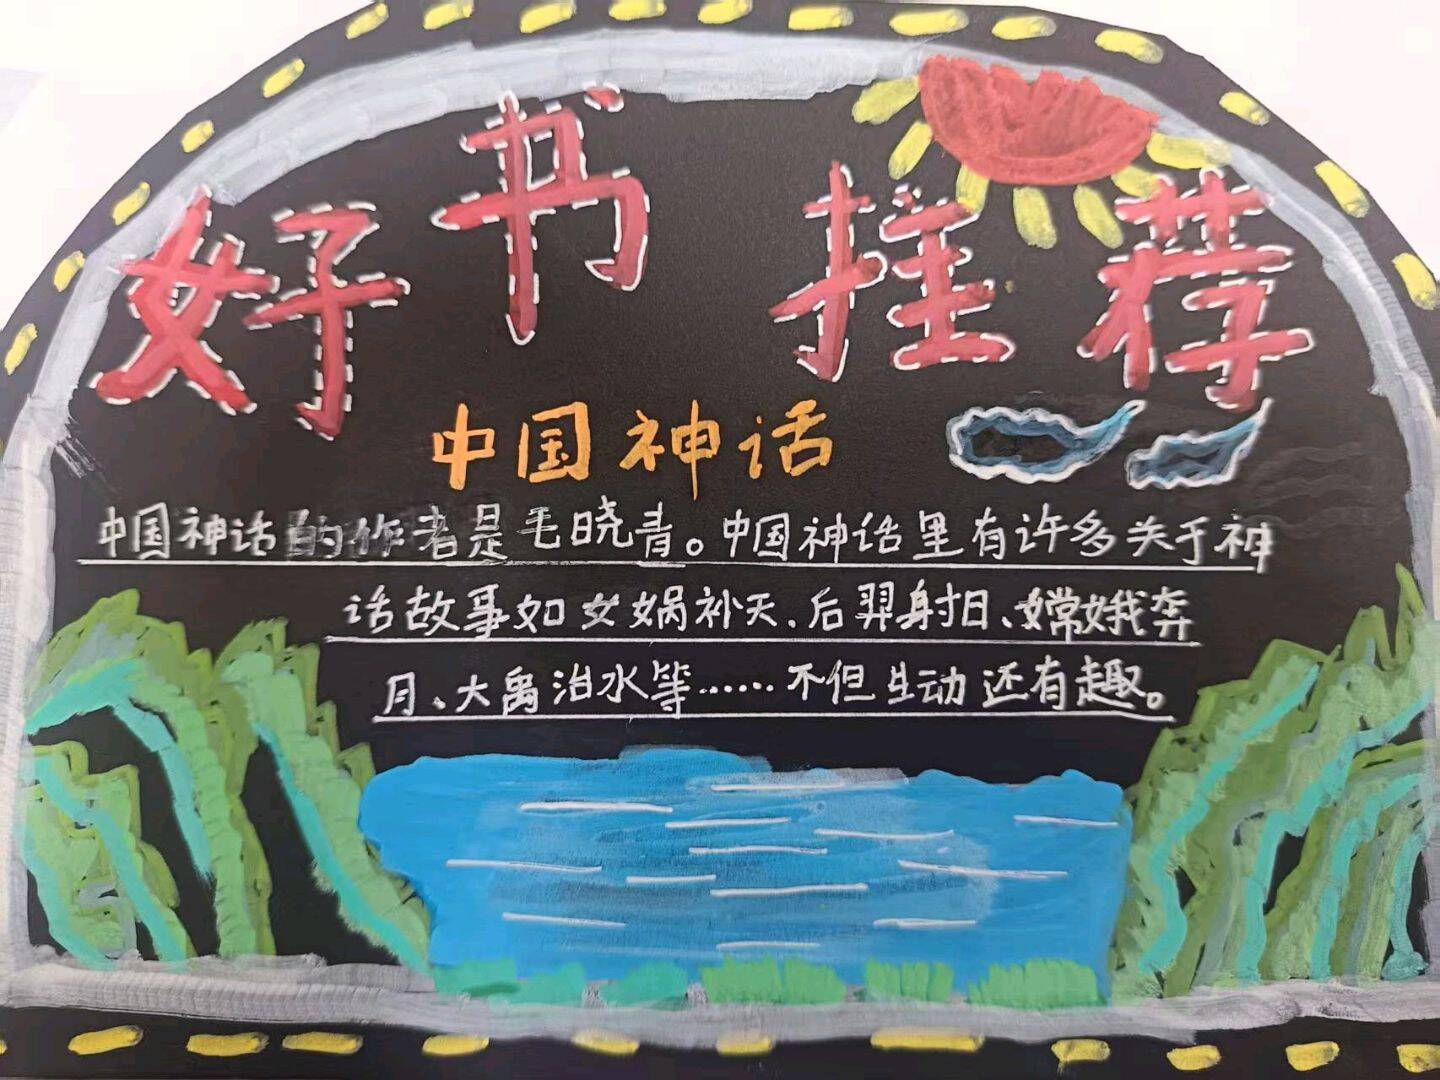 好书推荐
中国神话
中国神话的作者是毛晓青。中国神话里有许多关于神
话故事如女娲补天、后羿射日、嫦娥奔
月、大禹治水等……不但生动还有趣。